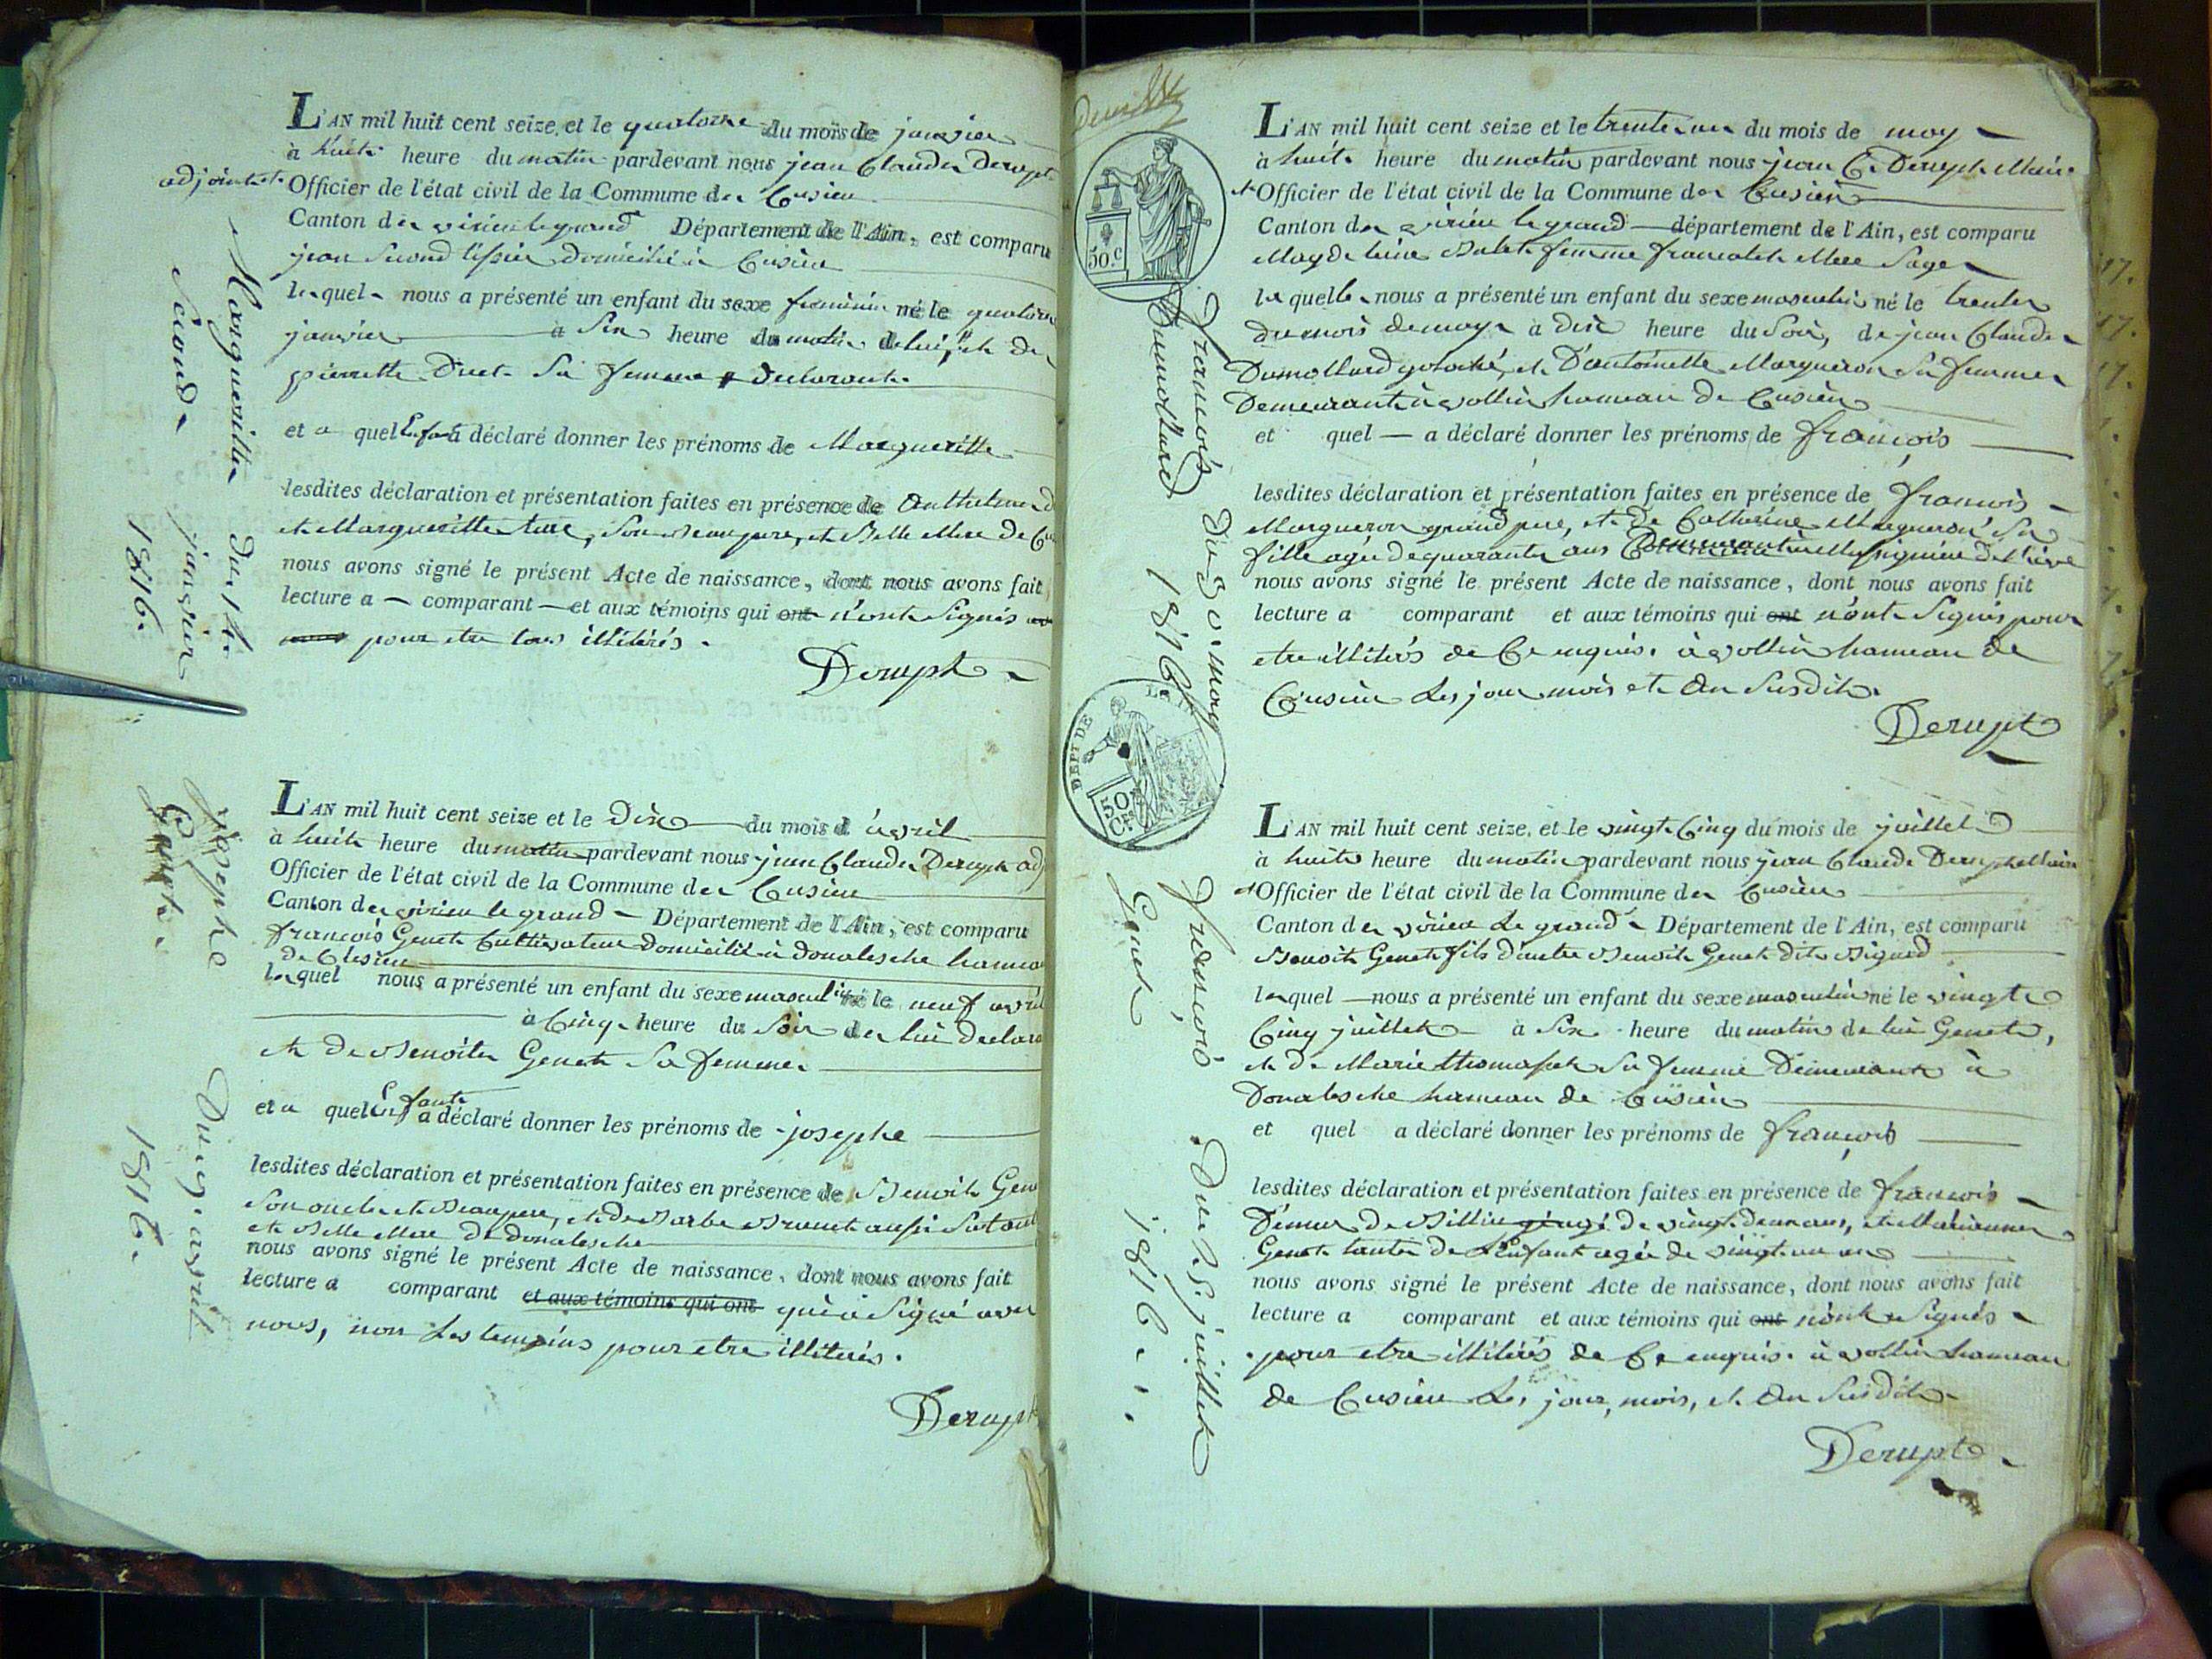 L'AN mil huit cent seize, et le quatorze du mois de janvier
à huit heure du matin pardevant nous jean Claude Derupt
adjoint et Officier de l'état civil de la Commune de Cusieu
Canton de virieu le grand Département de l'Ain, est comparu
jean Second domicilié à Cusieu
lequel nous a présenté un enfant du sexe feminin né le quatorze
janvier à Six heure du matin de lui, et de
pierrette Sa femme declarant
et a quel Enfant a déclaré donner les prénoms de Margueritte
lesdites déclaration et présentation faites en présence de Anthelme
et Margueritte Son Beaupere, et Belle Mere de
nous avons signé le présent Acte de naissance, dont nous avons fait
lecture a comparant et aux témoins qui ont n'ont Signés
pour etre tous illitérés.
Derupt
Margueritte du 14 janvier
Second 1816.
L'AN mil huit cent seize et le Dix du mois d avril
à huit heure du matin pardevant nous jean Claude Derupt adj
Officier de l'état civil de la Commune de Cusieu
Canton de virieu le grand Département de l'Ain, est comparu
francois Genet Cultivateur Domicilié à Donalesche hamea
de Cusieu
lequel nous a présenté un enfant du sexe masculin né le neuf avril
à Cinq heure du Soir de lui declara
et de Benoite Genet Sa femme
et a quel Enfant a déclaré donner les prénoms de josephe
lesdites déclaration et présentation faites en présence de Benoit Gen
Son oncle et Beaupere, et de Barbe aussi Sa tante
et Belle Mere de Donalesche
nous avons signé le présent Acte de naissance, dont nous avons fait
lecture a comparant et aux témoins qui ont qui a Signé avec
nous, non Les temoins pour etre illiterés.
Derupt
josephe Du 9. avril
Genet. 1816.
DEPT DE L'AIN
50.c
50 Ces
L'AN mil huit cent seize et le trente un du mois de may
à huit heure du matin pardevant nous jean C. Derupt Maire
et Officier de l'état civil de la Commune de Cusieu
Canton de virieu le grand département de l'Ain, est comparu
Magdeleine Balet femme francalet Mere Sage
laquelle nous a présenté un enfant du sexe masculin né le trente
du mois de may à dix heure du Soir, de jean Claude
Dumollard et D'antoinette Margueron Sa femme
Demeurant à vollin hameau de Cusieu
et quel a déclaré donner les prénoms de françois
lesdites déclaration et présentation faites en présence de francois
Margueron grand pere, et de Catherine Margueron Sa
fille agée de quarante ans
nous avons signé le présent Acte de naissance, dont nous avons fait
lecture a comparant et aux témoins qui ont n'ont Signés pour
etre illitérés de Ce enquis. à vollin hameau de
Cusieu Les jour mois et an Susdit.
Derupt
francois du 30 may
Dumollard 1816
L'AN mil huit cent seize, et le vingt Cinq du mois de juillet
à huit heure du matin pardevant nous jean Claude Derupt Maire
et Officier de l'état civil de la Commune de Cusieu
Canton de virieu Le grand Département de l'Ain, est comparu
Benoit Genet fils d'autre Benoit Genet dit Bigued
lequel nous a présenté un enfant du sexe masculin né le vingt
Cinq juillet à Six heure du matin de lui Genet,
et de Marie Thomasset Sa femme Demeurant à
Donalesche hameau de Cusieu
et quel a déclaré donner les prénoms de françois
lesdites déclaration et présentation faites en présence de francois
de Billieu agé de vingt deux ans, et Marianne
Genet tante de L'Enfant agée de vingt un ans
nous avons signé le présent Acte de naissance, dont nous avons fait
lecture a comparant et aux témoins qui ont n'ont Signés
pour etre illitérés de Ce enquis. à vollin hameau
de Cusieu Les jour, mois, et an Susdit
Derupt
francois Du 25. juillet
Genet 1816